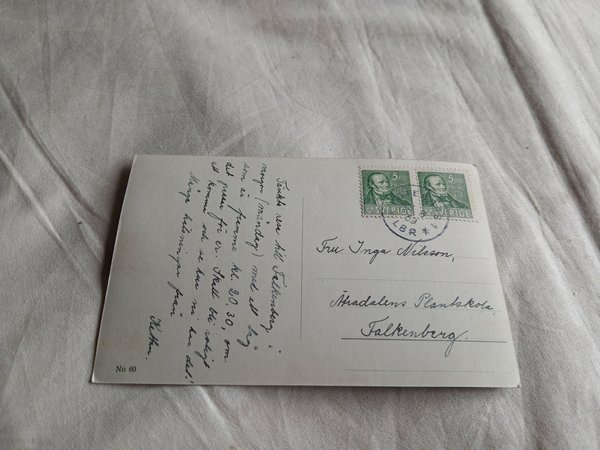 Tänkte resa till Falkenberg i
morgon (måndag) med ett tåg
som är framme kl. 20.30, om
det passar för er. Skall bli roligt
att komma och se hur ni har det!
Många hälsningar från
No 60
5 ÖRE
SVERIGE
5 ÖRE
SVERIGE
LBR
Fru Inga Nilsson,
Ätradalens Plantskola,
Falkenberg.